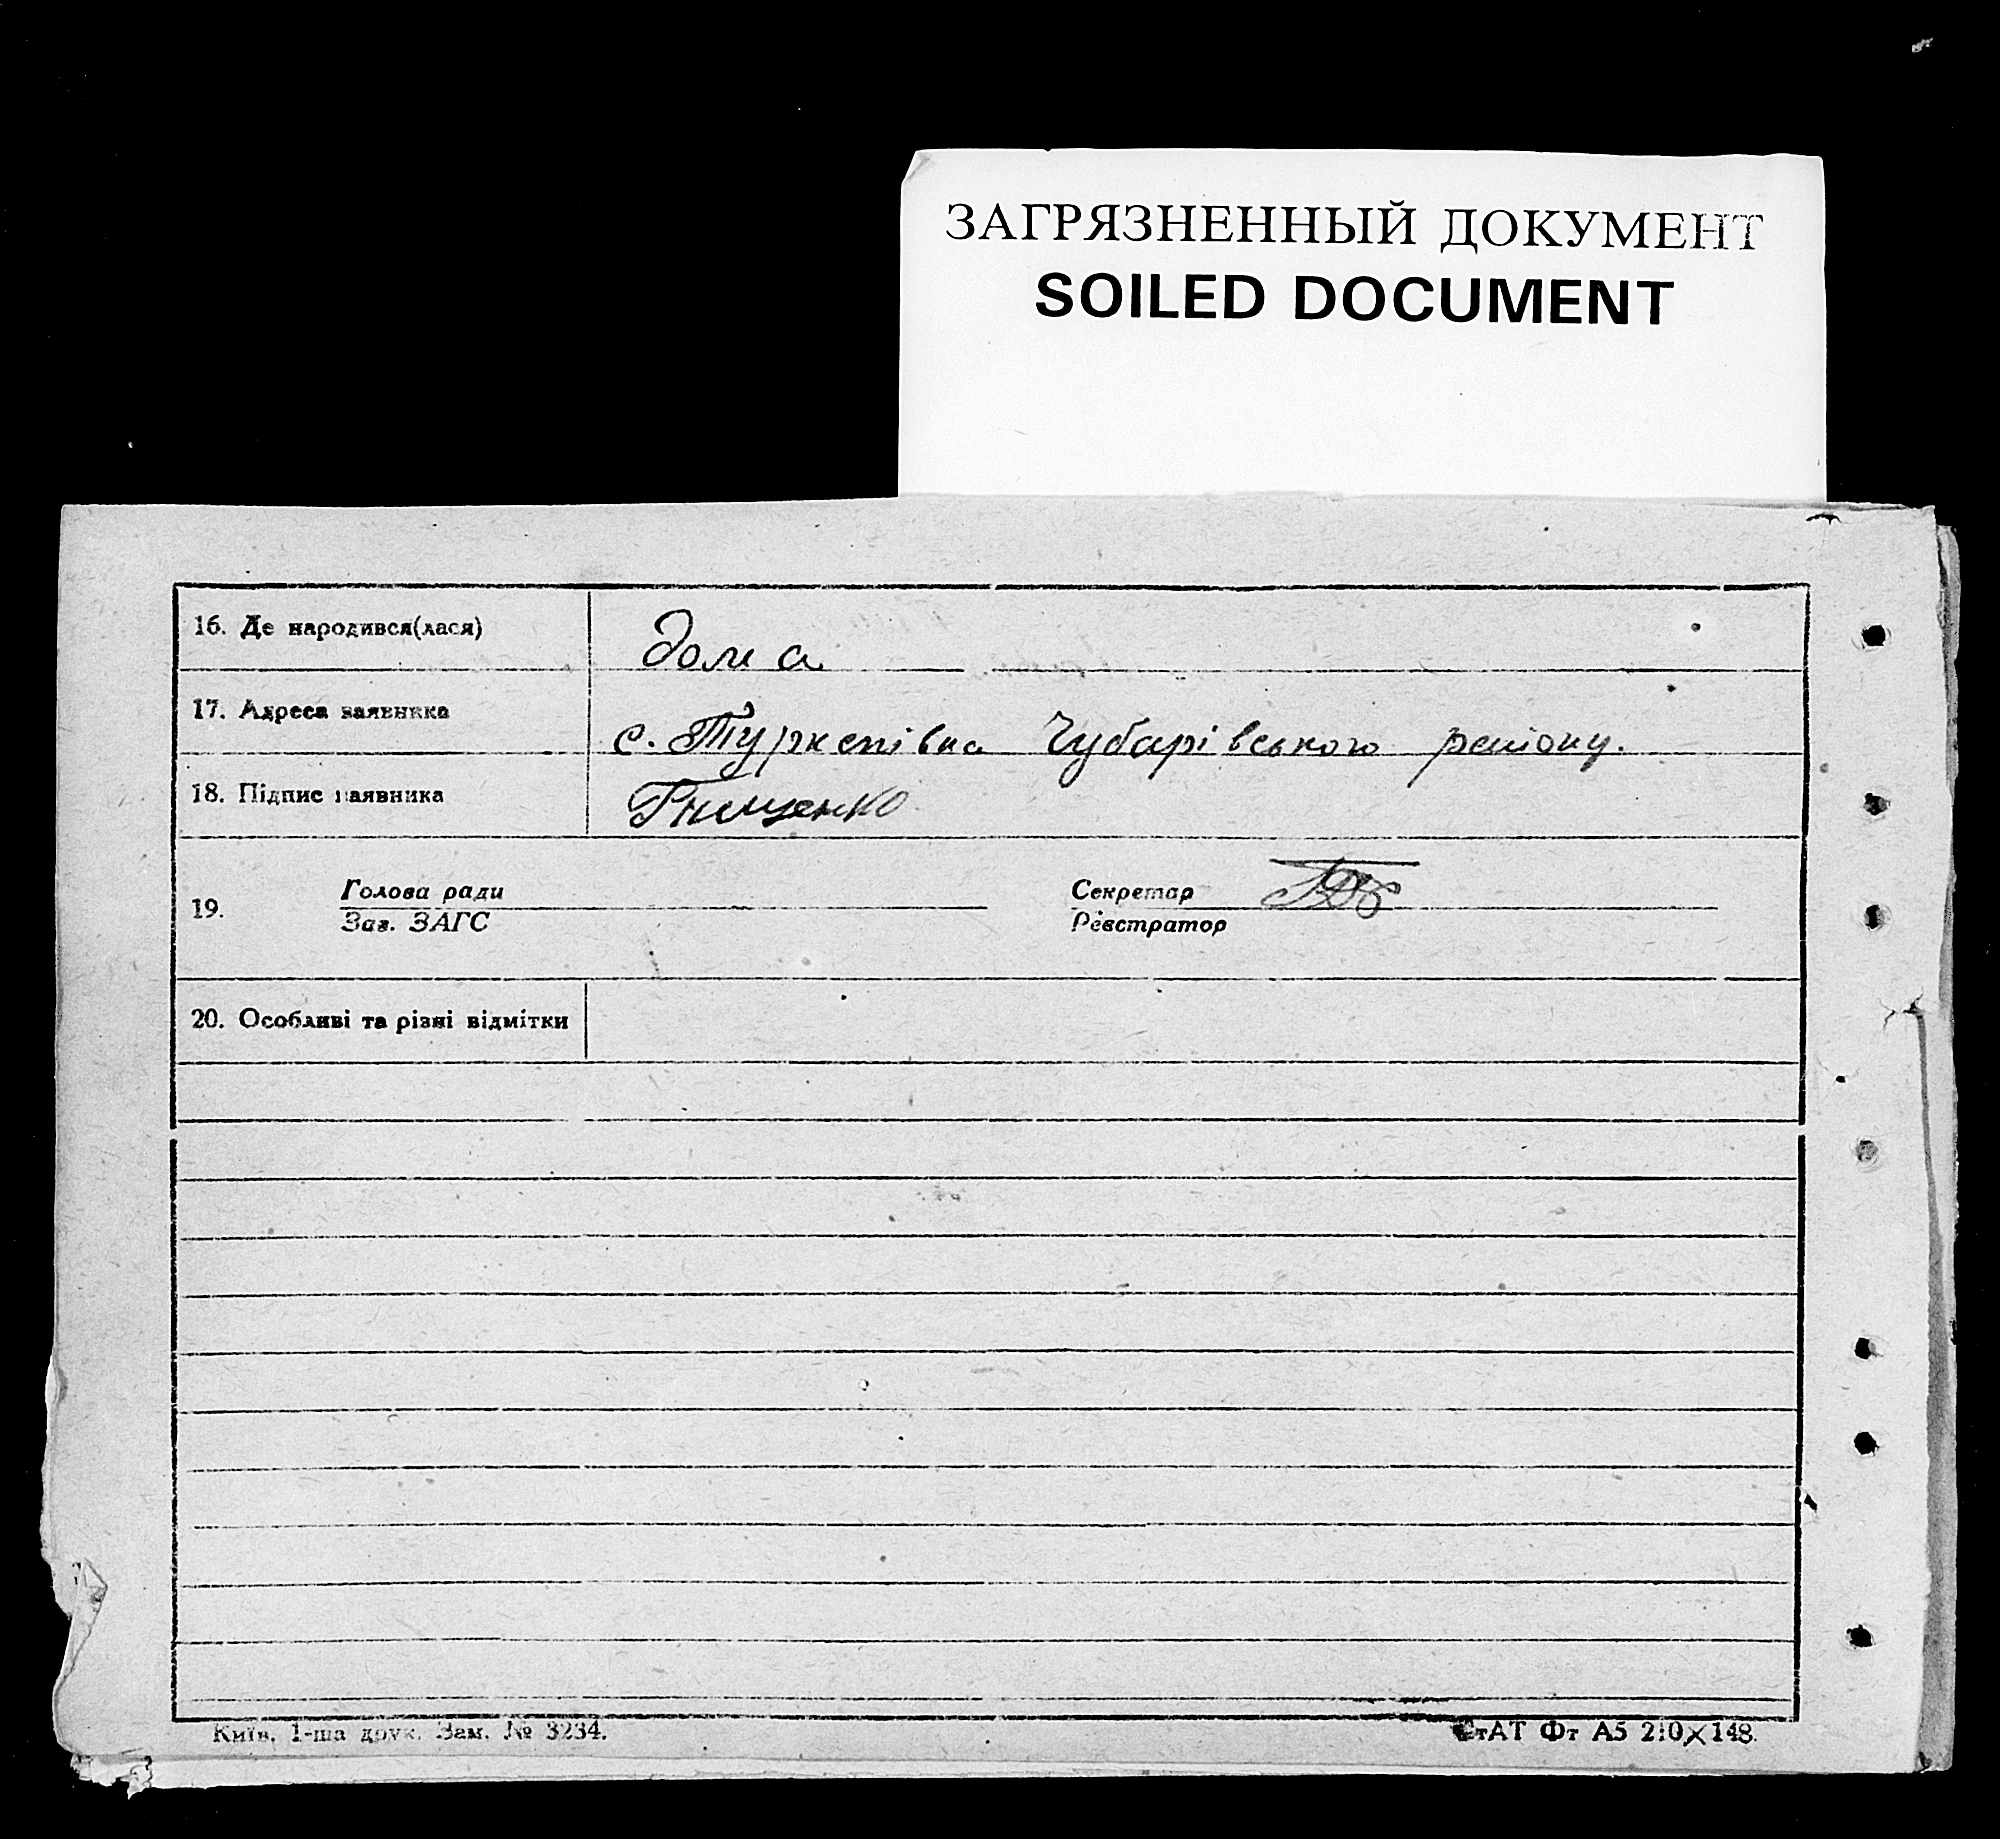 ЗАГРЯЗНЕННЫЙ ДОКУМЕНТ
SOILED DOCUMENT
16. Де народився(лася) дома
17. Адреса заявника с. Туркенівка Чубарівського району.
18. Підпис заявника Тищенко
19. Голова ради Секретар
Зав. ЗАГС Реєстратор
20. Особливі та різні відмітки
Київ, 1-ша друк. Зам. № 3234. СтАТ Фт А5 210×148.